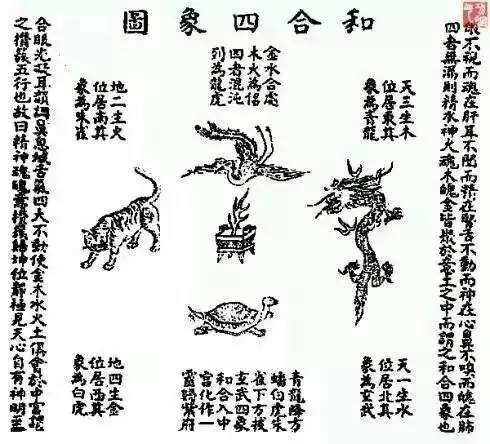 和合四象圖
眼不視而魂在肝耳不聞而精在腎舌不動而神在心鼻不嗅而魄在肺
四者無漏則精水神火魂木魄金皆聚於意土之中而謂之和合四象也
天三生木
位居東其
象為青龍
金水合處
木火為侶
四者混沌
列為龍虎
地二生火
位居南其
象為朱雀
天一生水
位居北其
象為玄武
青龍降方
蟠白虎朱
雀下方披
玄武四象
和合入中
宮化作一
靈歸紫府
地四生金
位居西其
象為白虎
合眼光凝耳韻調鼻息緘舌氣四大不動使金木水火土俱會於中宮謂
之攢簇五行也故曰精神魂魄意攢簇歸坤位靜極見天心自有神明至